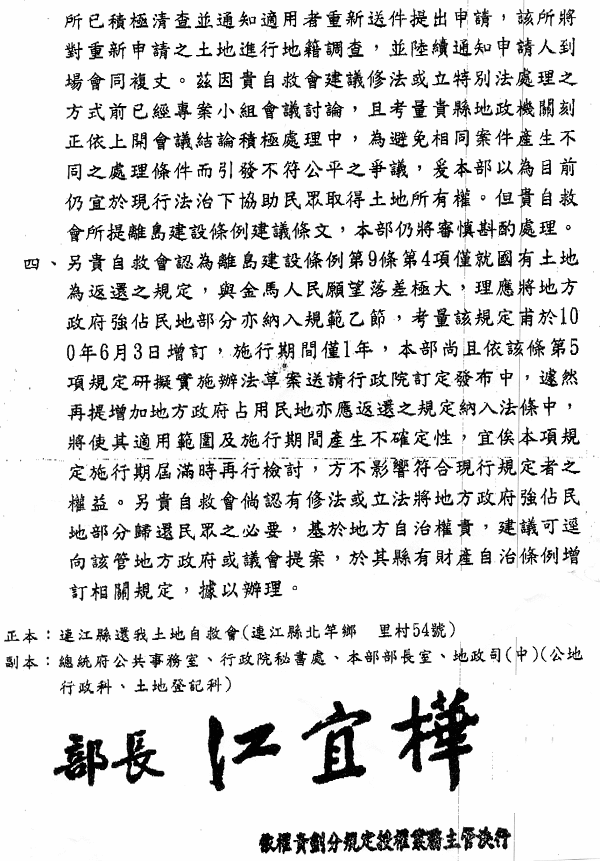 所已積極清查並通知適用者重新送件提出申請，該所將
對重新申請之土地進行地籍調查，並陸續通知申請人到
場會同複丈。茲因貴自救會建議修法或立特別法處理之
方式前已經專案小組會議討論，且考量貴縣地政機關刻
正依上開會議結論積極處理中，為避免相同案件產生不
同之處理條件而引發不符公平之爭議，爰本部以為目前
仍宜於現行法治下協助民眾取得土地所有權。但貴自救
會所提離島建設條例建議條文，本部仍將審慎斟酌處理。
四、另貴自救會認為離島建設條例第9條第4項僅就國有土地
為返還之規定，與金馬人民願望落差極大，理應將地方
政府強佔民地部分亦納入規範乙節，考量該規定甫於10
0年6月3日增訂，施行期間僅1年，本部尚且依該條第5
項規定研擬實施辦法草案送請行政院訂定發布中，遽然
再提增加地方政府占用民地亦應返還之規定納入法條中，
將使其適用範圍及施行期間產生不確定性，宜俟本項規
定施行期屆滿時再行檢討，方不影響符合現行規定者之
權益。另貴自救會倘認有修法或立法將地方政府強佔民
地部分歸還民眾之必要，基於地方自治權責，建議可逕
向該管地方政府或議會提案，於其縣有財產自治條例增
訂相關規定，據以辦理。
正本：連江縣還我土地自救會(連江縣北竿鄉　里村54號)
副本：總統府公共事務室、行政院秘書處、本部部長室、地政司(中)(公地
行政科、土地登記科)
部長 江宜樺
依權責劃分規定授權業務主管決行